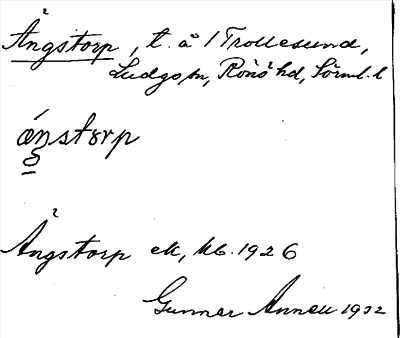 Ångstorp, t. å 1 Trollesund,
Ludgo sn, Rönö hd, Sörml. l
ǽnstorp
Ångstorp ek, kb. 1926
Gunnar 1932